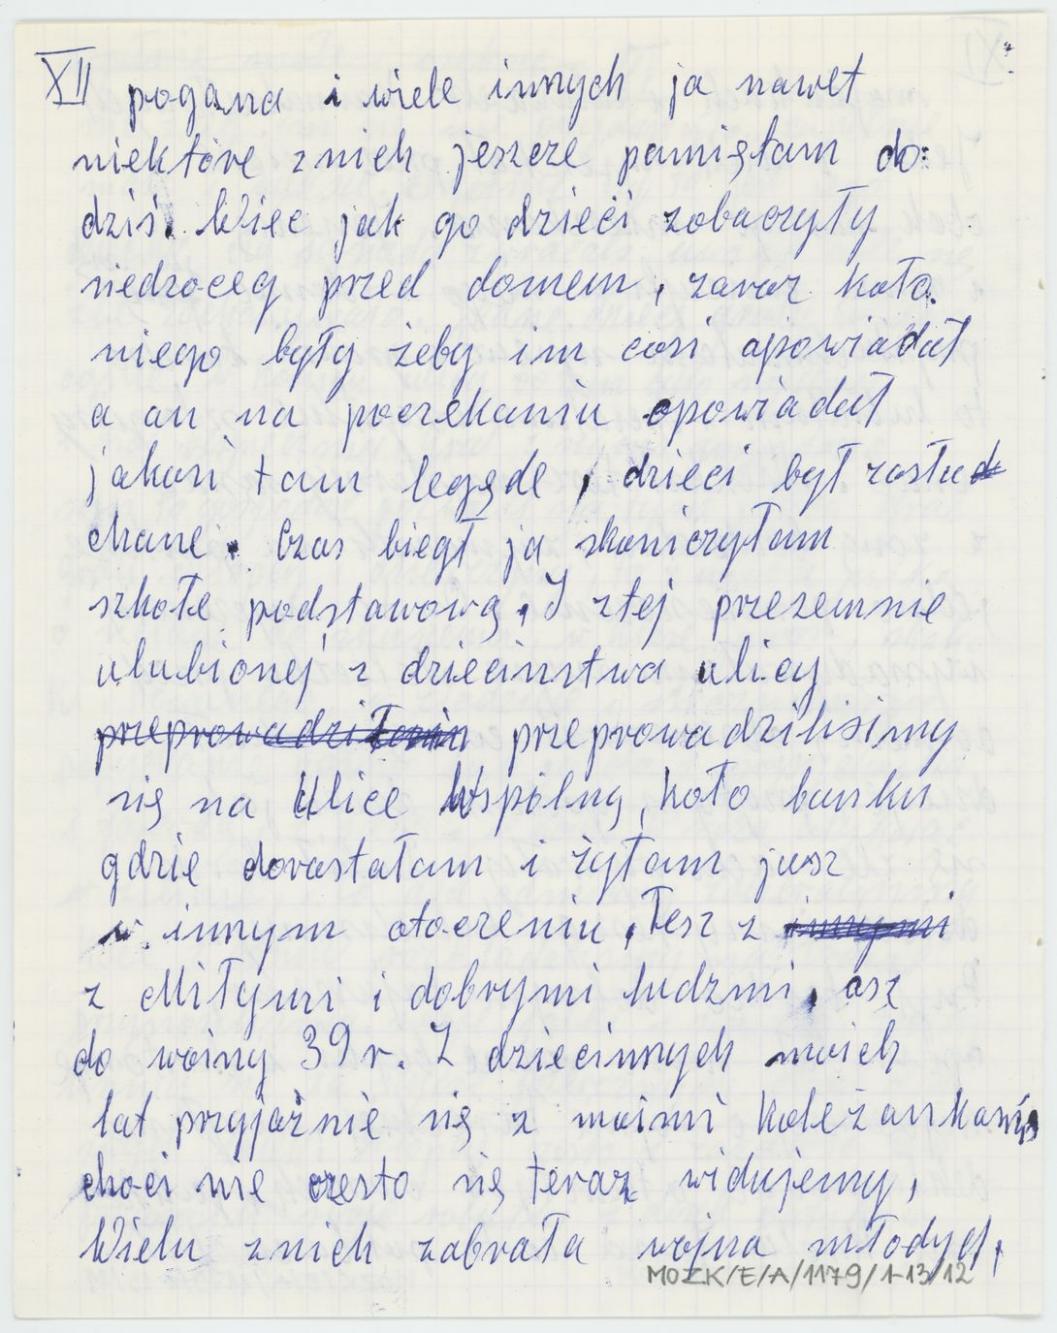 XII pogana i wiele innych ja nawet
niektóre znich jeszcze pamiętam do:
dziś. Wiec jak go dzieći zobaczyły
siedzoceg przed domem, zaraz koło.
niego były żeby im cosi opowiadał
a on na poczekaniu opowiadał
jakoń tam legęde, dzieci był zasłu
chane. Czas biegł ja skoniczyłam
szkołe podstawową, I ztej przezemnie
ulubionej z dziecinstwa ulicy
przeprowadziłam przeprowadzilisimy
się na Ulice Wspólną, koło banku
gdzie dorastałam i żyłam jusz
w innym otoczeniu, tesz z innymi
z Miłymi i dobrymi ludzmi, asz
do woiny 39 r. Z dziecinnych moich
lat przyjaźnie się z moimi koleżankami,
choci nie czesto się teraz widujemy,
Wielu znich zabrała wojna młodych,
MOZK/E/A/1179/1-13/12